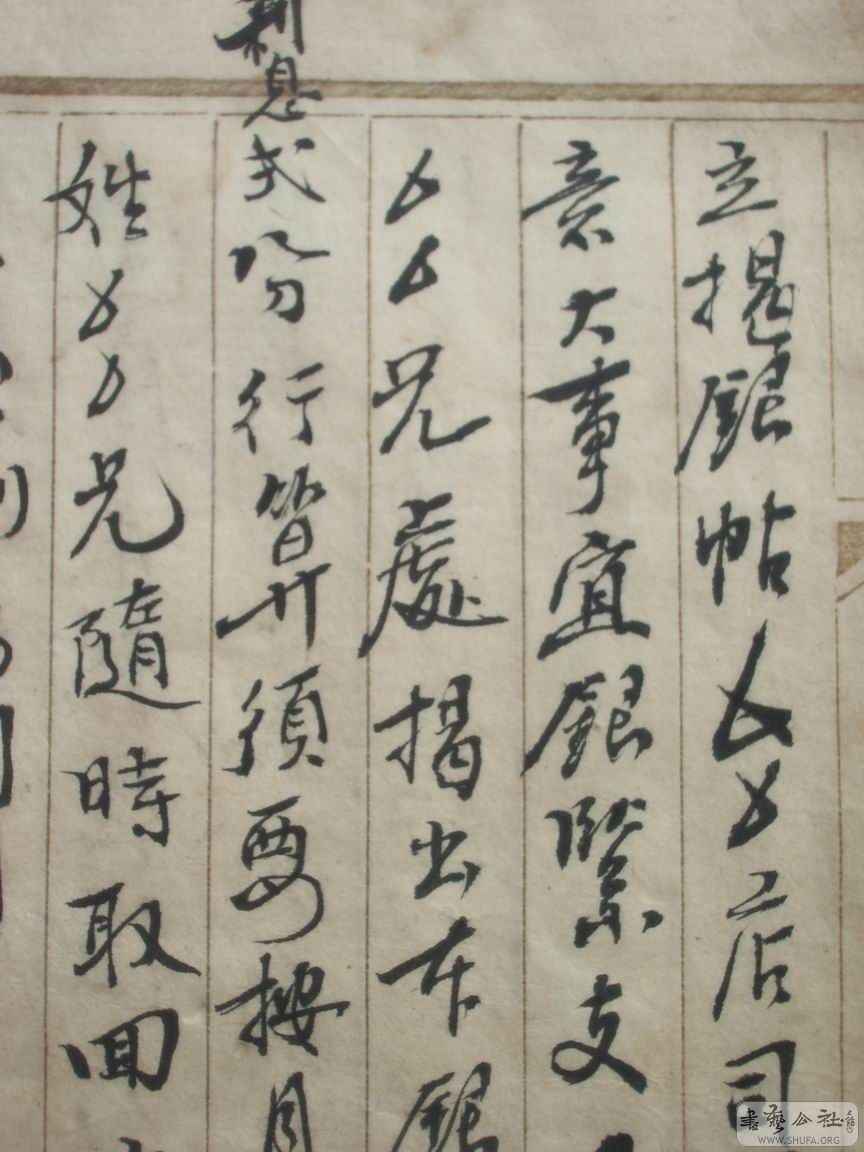 立揭銀帖厶厶店司
大事宜銀緊支
厶厶兄處揭出本銀
利息弍分行算須要按月
姓厶厶兄隨時取回
書藝公社
WWW.SHUFA.ORG